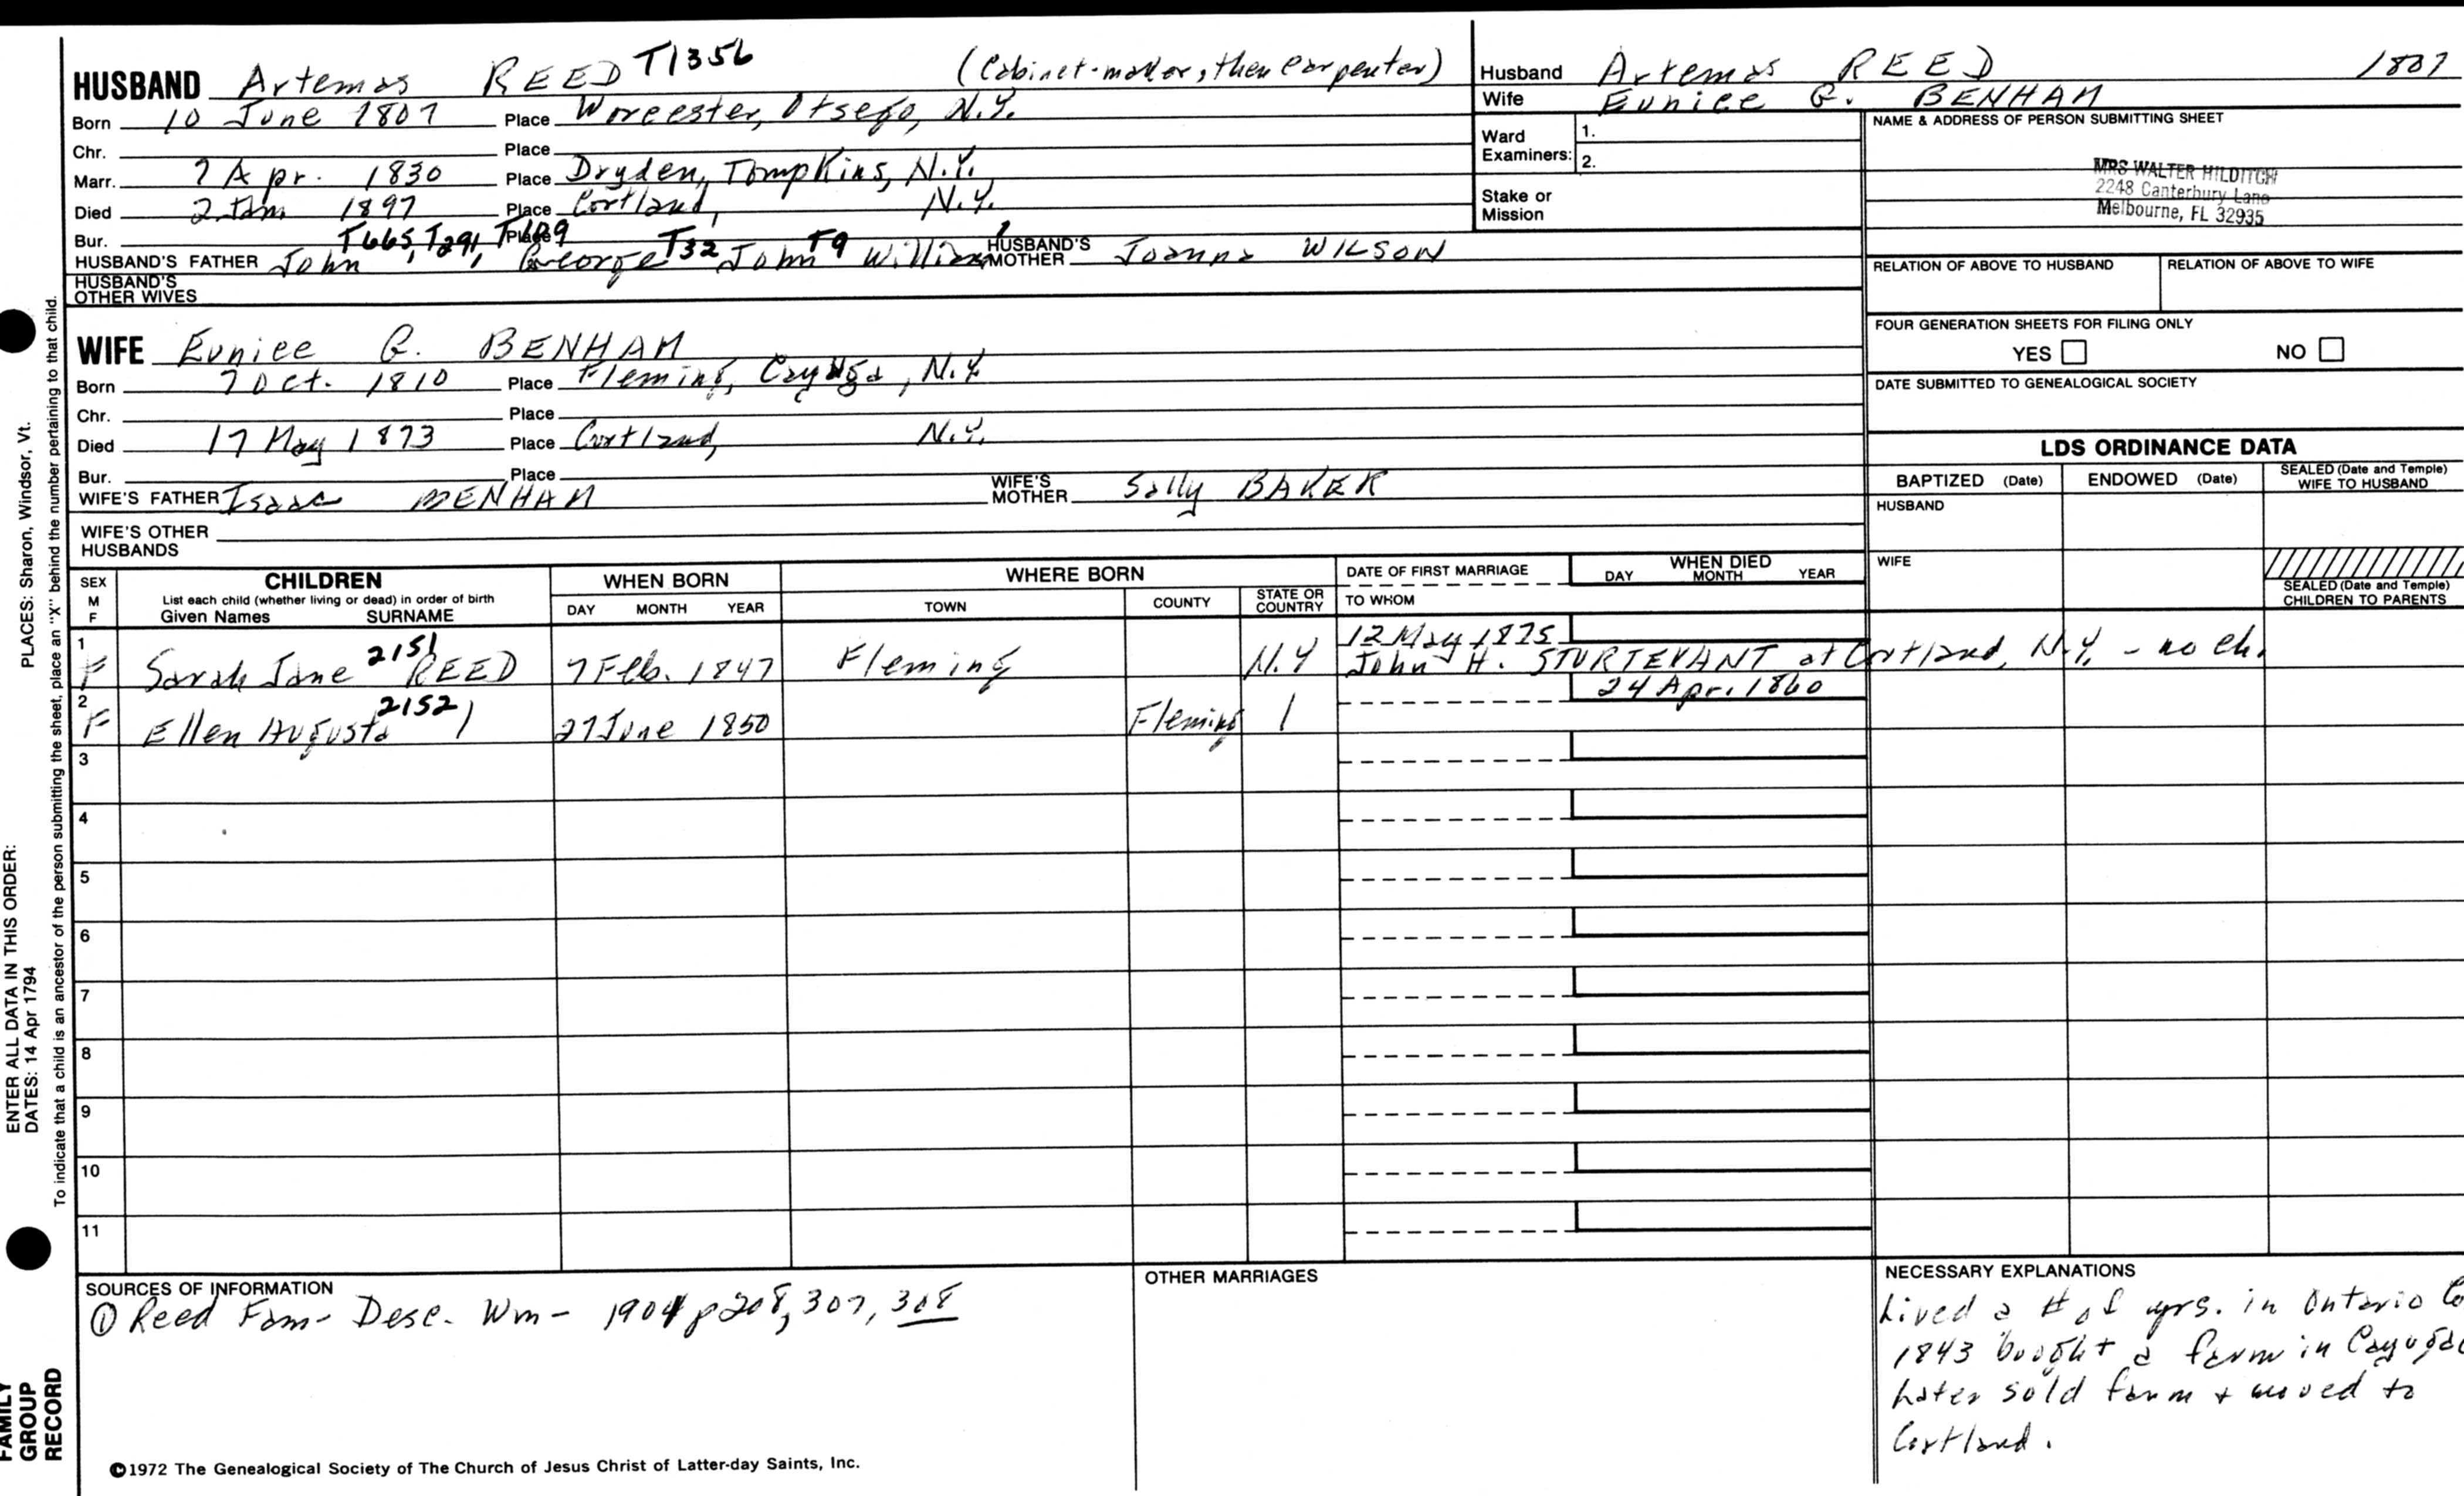 HUSBAND Artemas REED T1356 (Cabinet-maker, then carpenter)
Born 10 June 1807 Place Worcester, Otsego, N.Y.
Chr. Place
Marr. 7 Apr. 1830 Place Dryden, Tompkins, N.Y.
Died 2 Jan 1897 Place Cortland, N.Y.
Bur. Place
HUSBAND'S FATHER John T665, T291, George T32 John T9 William HUSBAND'S MOTHER Joanna WILSON
HUSBAND'S OTHER WIVES
Husband Artemas REED 1807
Wife Eunice G. BENHAM
Ward Examiners: 1.
2.
Stake or Mission
NAME & ADDRESS OF PERSON SUBMITTING SHEET
MRS WALTER HILDITCH
2248 Canterbury Lane
Melbourne, FL 32935
RELATION OF ABOVE TO HUSBAND RELATION OF ABOVE TO WIFE
FOUR GENERATION SHEETS FOR FILING ONLY
YES NO
DATE SUBMITTED TO GENEALOGICAL SOCIETY
WIFE Eunice G. BENHAM
Born 7 Oct. 1810 Place Fleming, Cayuga, N.Y.
Chr. Place
Died 17 May 1873 Place Cortland, N.Y.
Bur. Place
WIFE'S FATHER Isaac BENHAM WIFE'S MOTHER Sally BAKER
WIFE'S OTHER HUSBANDS
LDS ORDINANCE DATA
BAPTIZED (Date) ENDOWED (Date) SEALED (Date and Temple) WIFE TO HUSBAND
HUSBAND
WIFE
SEALED (Date and Temple) CHILDREN TO PARENTS
SEX M F
CHILDREN
List each child (whether living or dead) in order of birth
Given Names SURNAME
WHEN BORN
DAY MONTH YEAR
WHERE BORN
TOWN COUNTY STATE OR COUNTRY
DATE OF FIRST MARRIAGE
TO WHOM
WHEN DIED
DAY MONTH YEAR
1 F Sarah Jane 2151 REED 7 Feb. 1847 Fleming N.Y 12 May 1875
John H. STURTEVANT at Cortland, N.Y. - no ch.
2 F Ellen Augusta 2152 27 June 1850 Fleming 24 Apr. 1860
3
4
5
6
7
8
9
10
11
SOURCES OF INFORMATION
① Reed Fam- Desc. Wm- 1904 p208, 307, 308
OTHER MARRIAGES
NECESSARY EXPLANATIONS
Lived a # of yrs. in Ontario Co
1843 bought a farm in Cayuga
Later sold farm + moved to
Cortland.
©1972 The Genealogical Society of The Church of Jesus Christ of Latter-day Saints, Inc.
FAMILY GROUP RECORD
ENTER ALL DATA IN THIS ORDER:
DATES: 14 Apr 1794
PLACES: Sharon, Windsor, Vt.
To indicate that a child is an ancestor of the person submitting the sheet, place an "X" behind the number pertaining to that child.